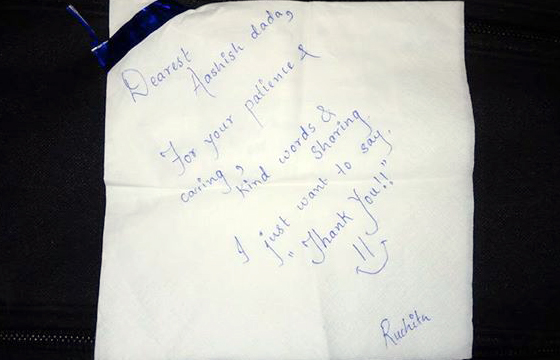 Dearest
Aashish dada,
For your patience &
caring, kind words &
Sharing.
I just want to say,
"Thank You!!"
Ruchita